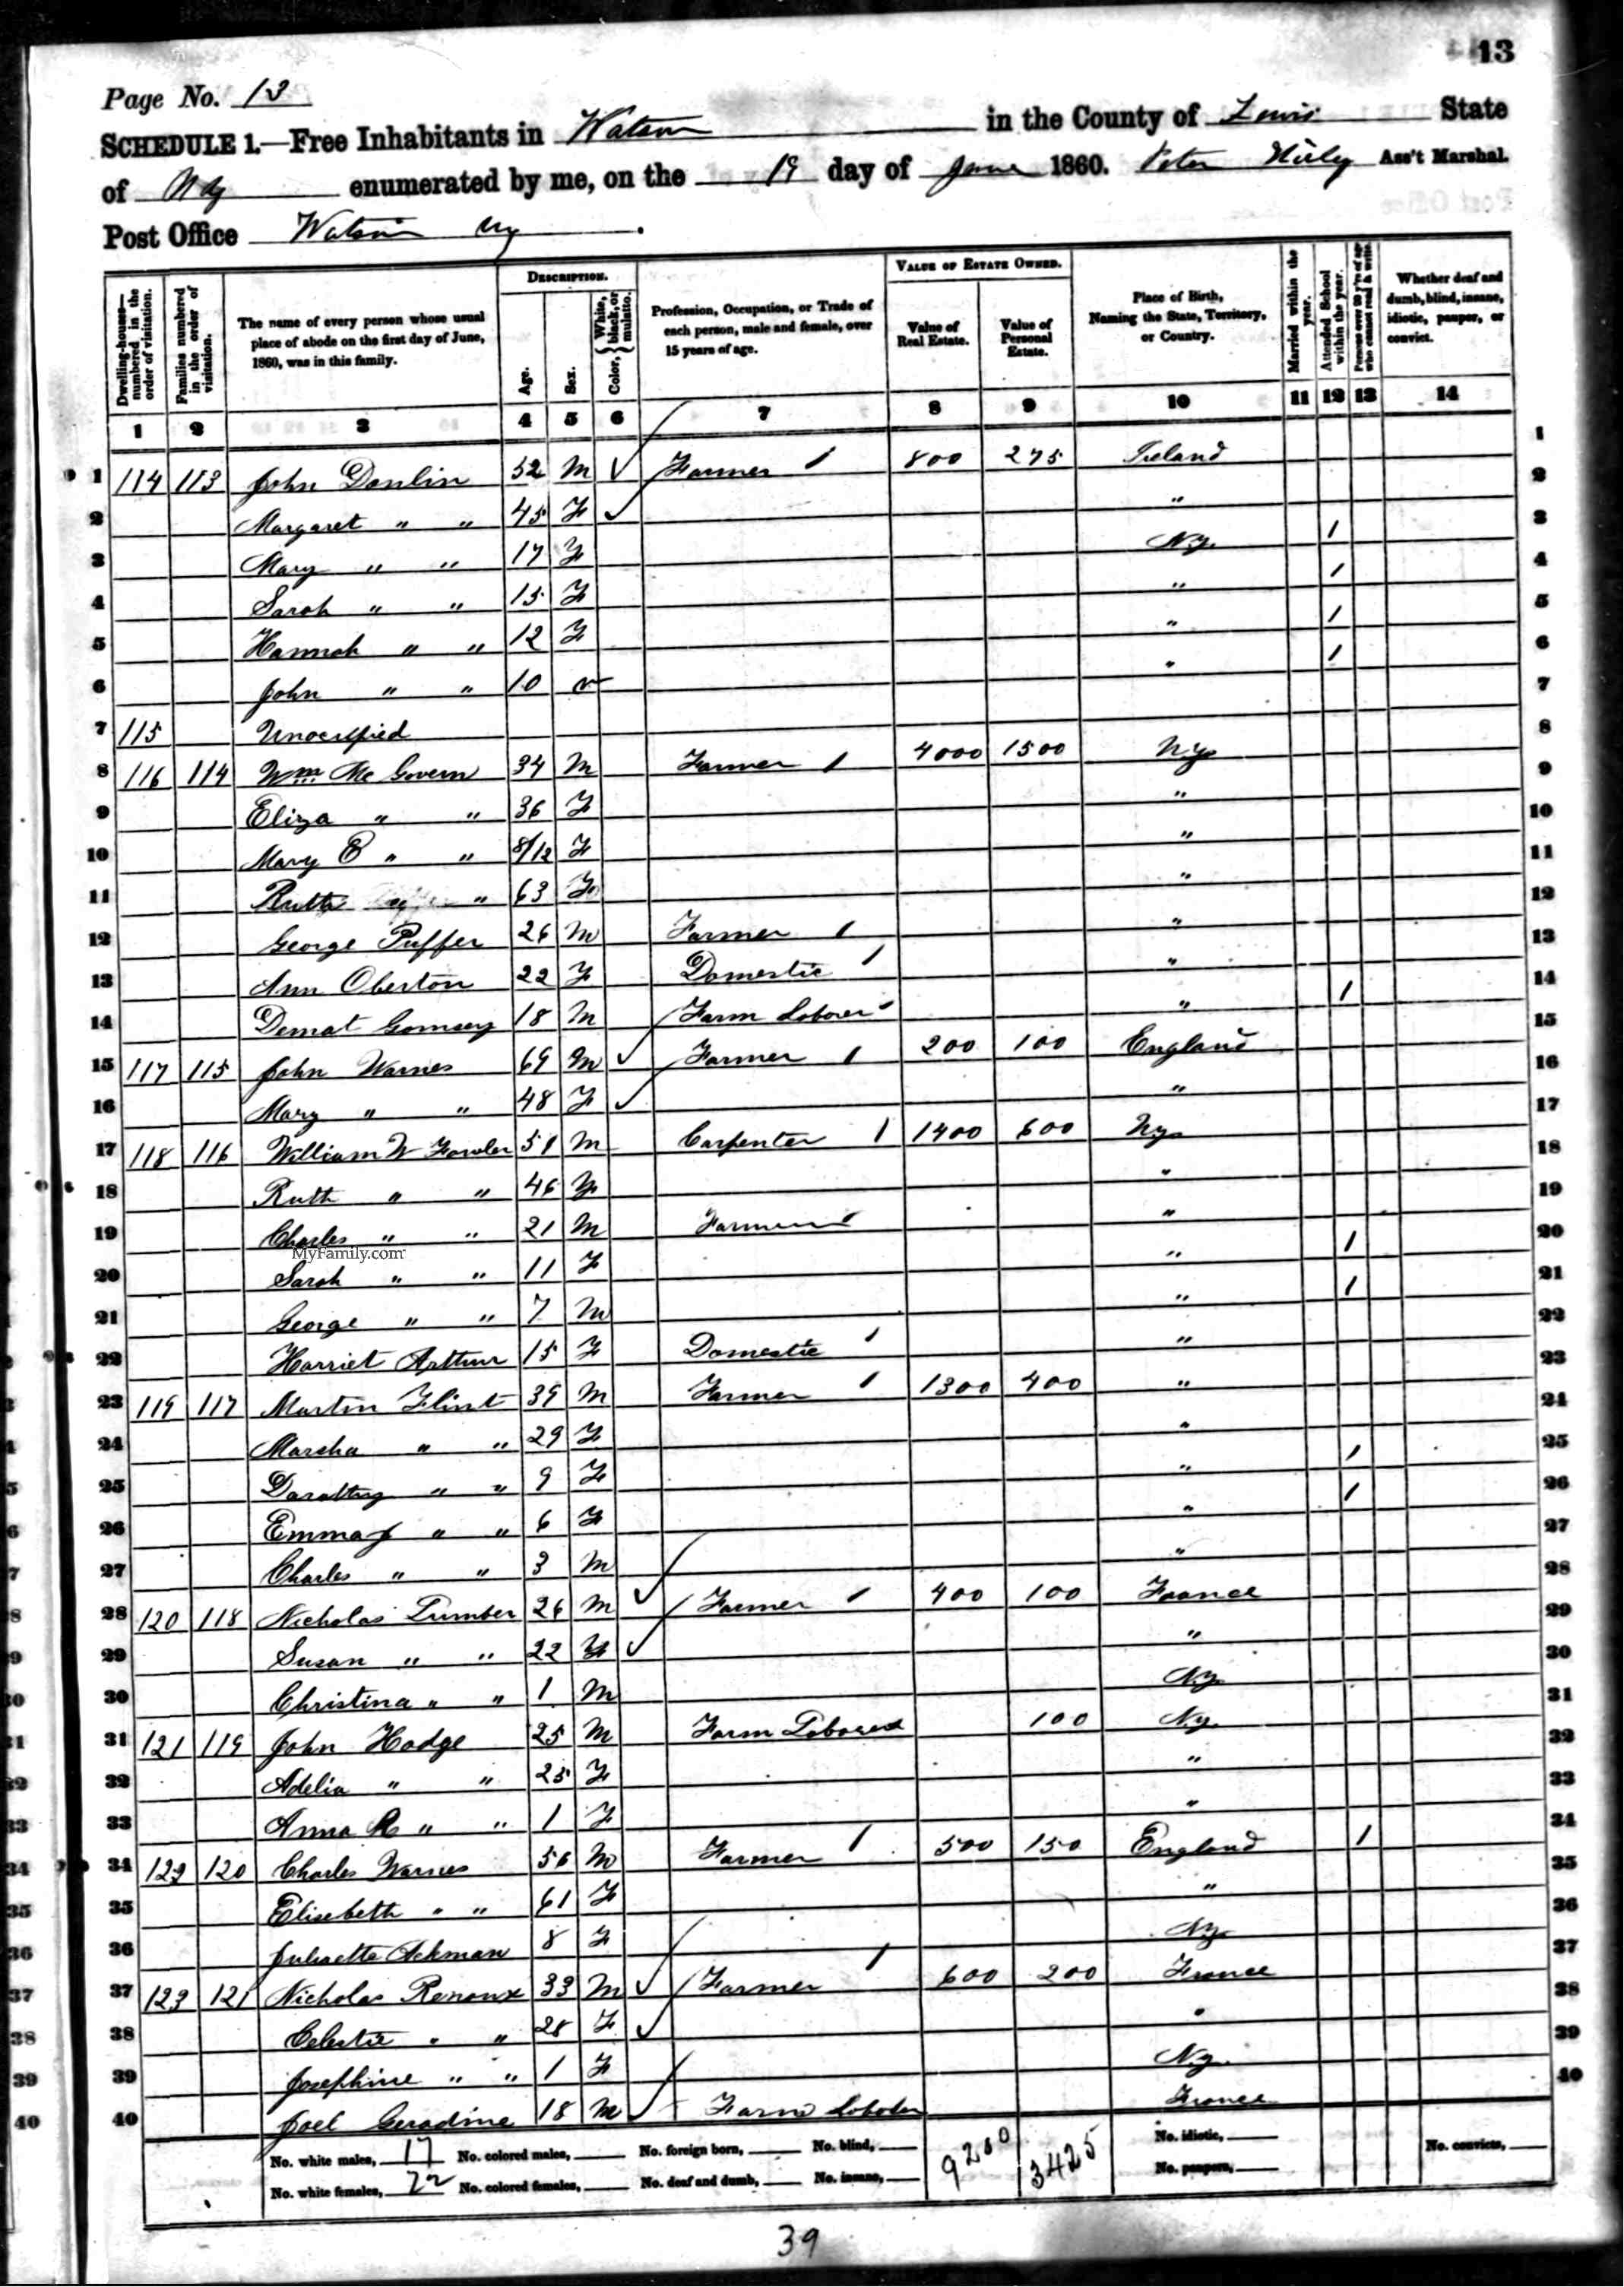 13
Page No. 13
SCHEDULE 1.—Free Inhabitants in Watson in the County of Lewis State
of N Y enumerated by me, on the 19 day of June 1860. Peter Ass't Marshal.
Post Office Watson Ny.
Dwelling-houses—numbered in the order of visitation. Families numbered in the order of visitation. The name of every person whose usual place of abode on the first day of June, 1860, was in this family. DESCRIPTION. Age. Sex. Color, { White, black, or mulatto. Profession, Occupation, or Trade of each person, male and female, over 15 years of age. VALUE OF ESTATE OWNED. Value of Real Estate. Value of Personal Estate. Place of Birth, Naming the State, Territory, or Country. Married within the year. Attended School within the year. Persons over 20 y'rs of age who cannot read & write. Whether deaf and dumb, blind, insane, idiotic, pauper, or convict.
1 2 3 4 5 6 7 8 9 10 11 12 13 14
1 114 113 John Donlin 52 M Farmer 1 800 275 Ireland 1
2 Margaret " " 45 F " 2
3 Mary " " 17 F Ny. 1 3
4 Sarah " " 15 F " 1 4
5 Hannah " " 12 F " 1 5
6 John " " 10 " 1 6
7 115 Unoccupied 7
8 116 114 Wm Mc Govern 34 M Farmer 1 4000 1500 Ny 8
9 Eliza " " 36 F " 9
10 Mary E " " 8/12 F " 10
11 Ruth " 63 F " 11
12 George Puffer 26 M Farmer 1 " 12
13 Ann Oberton 22 F Domestic 1 " 13
14 Demat Gomsey 18 M Farm Laborer " 1 14
15 117 115 John Warnes 69 M Farmer 1 200 100 England 15
16 Mary " " 48 F " 16
17 118 116 William W Fowler 51 M Carpenter 1 1400 600 Ny 17
18 Ruth " " 46 F " 18
19 Charles " " 21 M Farmer 1 " 19
MyFamily.com
20 Sarah " " 11 F " 1 20
21 George " " 7 M " 1 21
22 Harriet Arthur 15 F Domestic 1 " 22
23 119 117 Martin Flint 39 M Farmer 1 1300 400 " 23
24 Marsha " " 29 F " 24
25 Doratthy " " 9 F " 1 25
26 Emma J " " 6 F " 1 26
27 Charles " " 3 M " 27
28 120 118 Nicholas Tumber 26 M Farmer 1 400 100 France 28
29 Susan " " 22 F " 29
30 Christina " " 1 M Ny 30
31 121 119 John Hodge 25 M Farm Laborer 100 Ny. 31
32 Adelia " " 25 F " 32
33 Anna R " " 1 F " 33
34 122 120 Charles Warnes 56 M Farmer 1 500 150 England 1 34
35 Elisebeth " " 61 F " 35
36 Juliaette Ackman 8 F Ny 36
37 123 121 Nicholas Renoux 33 M Farmer 1 600 200 France 37
38 Celestie " " 28 F " 38
39 Josephine " " 1 F Ny. 39
40 Joel Geradine 18 M Farm Laborer France 40
No. white males, 17 No. colored males, No. foreign born, No. blind, 9200 3425 No. idiotic, No. convicts,
No. white females, 22 No. colored females, No. deaf and dumb, No. insane, No. paupers,
39